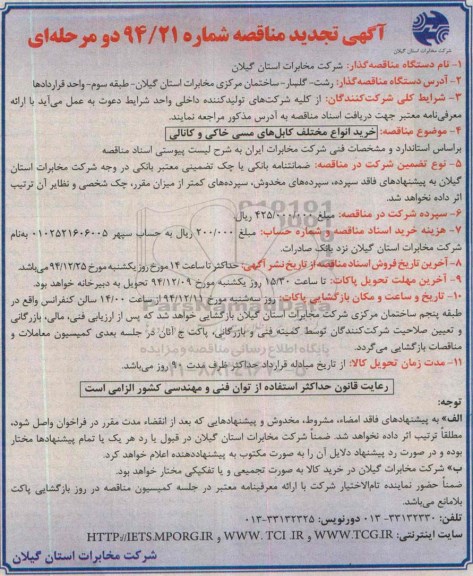 آگهی تجدید مناقصه شماره ۹۴/۲۱ دو مرحله‌ای
شرکت مخابرات استان گیلان
۱- نام دستگاه مناقصه‌گذار: شرکت مخابرات استان گیلان
۲- آدرس دستگاه مناقصه‌گذار: رشت- گلسار- ساختمان مرکزی مخابرات استان گیلان- طبقه سوم- واحد قراردادها
۳- شرایط کلی شرکت‌کنندگان: از کلیه شرکت‌های تولیدکننده داخلی واجد شرایط دعوت به عمل می‌آید با ارائه
معرفی‌نامه معتبر جهت دریافت اسناد مناقصه به آدرس مذکور مراجعه نمایند.
۴- موضوع مناقصه: خرید انواع مختلف کابل‌های مسی خاکی و کانالی
براساس استاندارد و مشخصات فنی شرکت مخابرات ایران به شرح لیست پیوستی اسناد مناقصه
۵- نوع تضمین شرکت در مناقصه: ضمانتنامه بانکی یا چک تضمینی معتبر بانکی در وجه شرکت مخابرات استان
گیلان به پیشنهادهای فاقد سپرده، سپرده‌های مخدوش، سپرده‌های کمتر از میزان مقرر، چک شخصی و نظایر آن ترتیب
اثر داده نخواهد شد.
۶- سپرده شرکت در مناقصه: مبلغ ۴۲۵/۰۰۰/۰۰۰ ریال
۷- هزینه خرید اسناد مناقصه و شماره حساب: مبلغ ۲۰۰/۰۰۰ ریال به حساب سپهر ۰۱۰۲۵۲۱۶۰۶۰۰۵ به‌نام
شرکت مخابرات استان گیلان نزد بانک صادرات.
۸- آخرین تاریخ فروش اسناد مناقصه از تاریخ نشر آگهی: حداکثر تا ساعت ۱۴ مورخ روز یکشنبه مورخ ۹۴/۱۲/۲۵ می‌باشد.
۹- آخرین مهلت تحویل پاکات: تا ساعت ۱۵/۳۰ روز یکشنبه مورخ ۹۴/۱۲/۰۹ تحویل به دبیرخانه خواهد بود.
۱۰- تاریخ و ساعت و مکان بازگشایی پاکات: روز سه‌شنبه مورخ ۹۴/۱۲/۱۱ از ساعت ۱۴/۰۰ سالن کنفرانس واقع در
طبقه پنجم ساختمان مرکزی شرکت مخابرات استان گیلان بازگشایی خواهد شد که پس از ارزیابی فنی، مالی، بازرگانی
و تعیین صلاحیت شرکت‌کنندگان توسط کمیته فنی و بازرگانی، پاکت ج آنان در جلسه بعدی کمیسیون معاملات و
مناقصات بازگشایی می‌گردد.
۱۱- مدت زمان تحویل کالا: از تاریخ مبادله قرارداد حداکثر ظرف مدت ۹۰ روز می‌باشد.
رعایت قانون حداکثر استفاده از توان فنی و مهندسی کشور الزامی است
توجه:
الف» به پیشنهادهای فاقد امضاء، مشروط، مخدوش و پیشنهادهایی که بعد از انقضاء مدت مقرر در فراخوان واصل شود،
مطلقاً ترتیب اثر داده نخواهد شد. ضمناً شرکت مخابرات استان گیلان در قبول یا رد هر یک یا تمام پیشنهادها مختار
بوده و در صورت رد پیشنهاد دلایل آن را به صورت مکتوب به پیشنهاددهنده اعلام خواهد کرد.
ب» شرکت مخابرات گیلان در خرید کالا به صورت تجمیعی و یا تفکیکی مختار خواهد بود.
ضمناً حضور نماینده تام‌الاختیار شرکت با ارائه معرفینامه معتبر در جلسه کمیسیون مناقصه در روز بازگشایی پاکت
بلامانع می‌باشد.
تلفن: ۳۳۱۳۲۳۳۰-۰۱۳ دورنویس: ۳۳۱۳۲۳۲۵-۰۱۳
سایت اینترنتی: WWW.TCG.IR و WWW. TCI .IR و HTTP://IETS.MPORG.IR
شرکت مخابرات استان گیلان